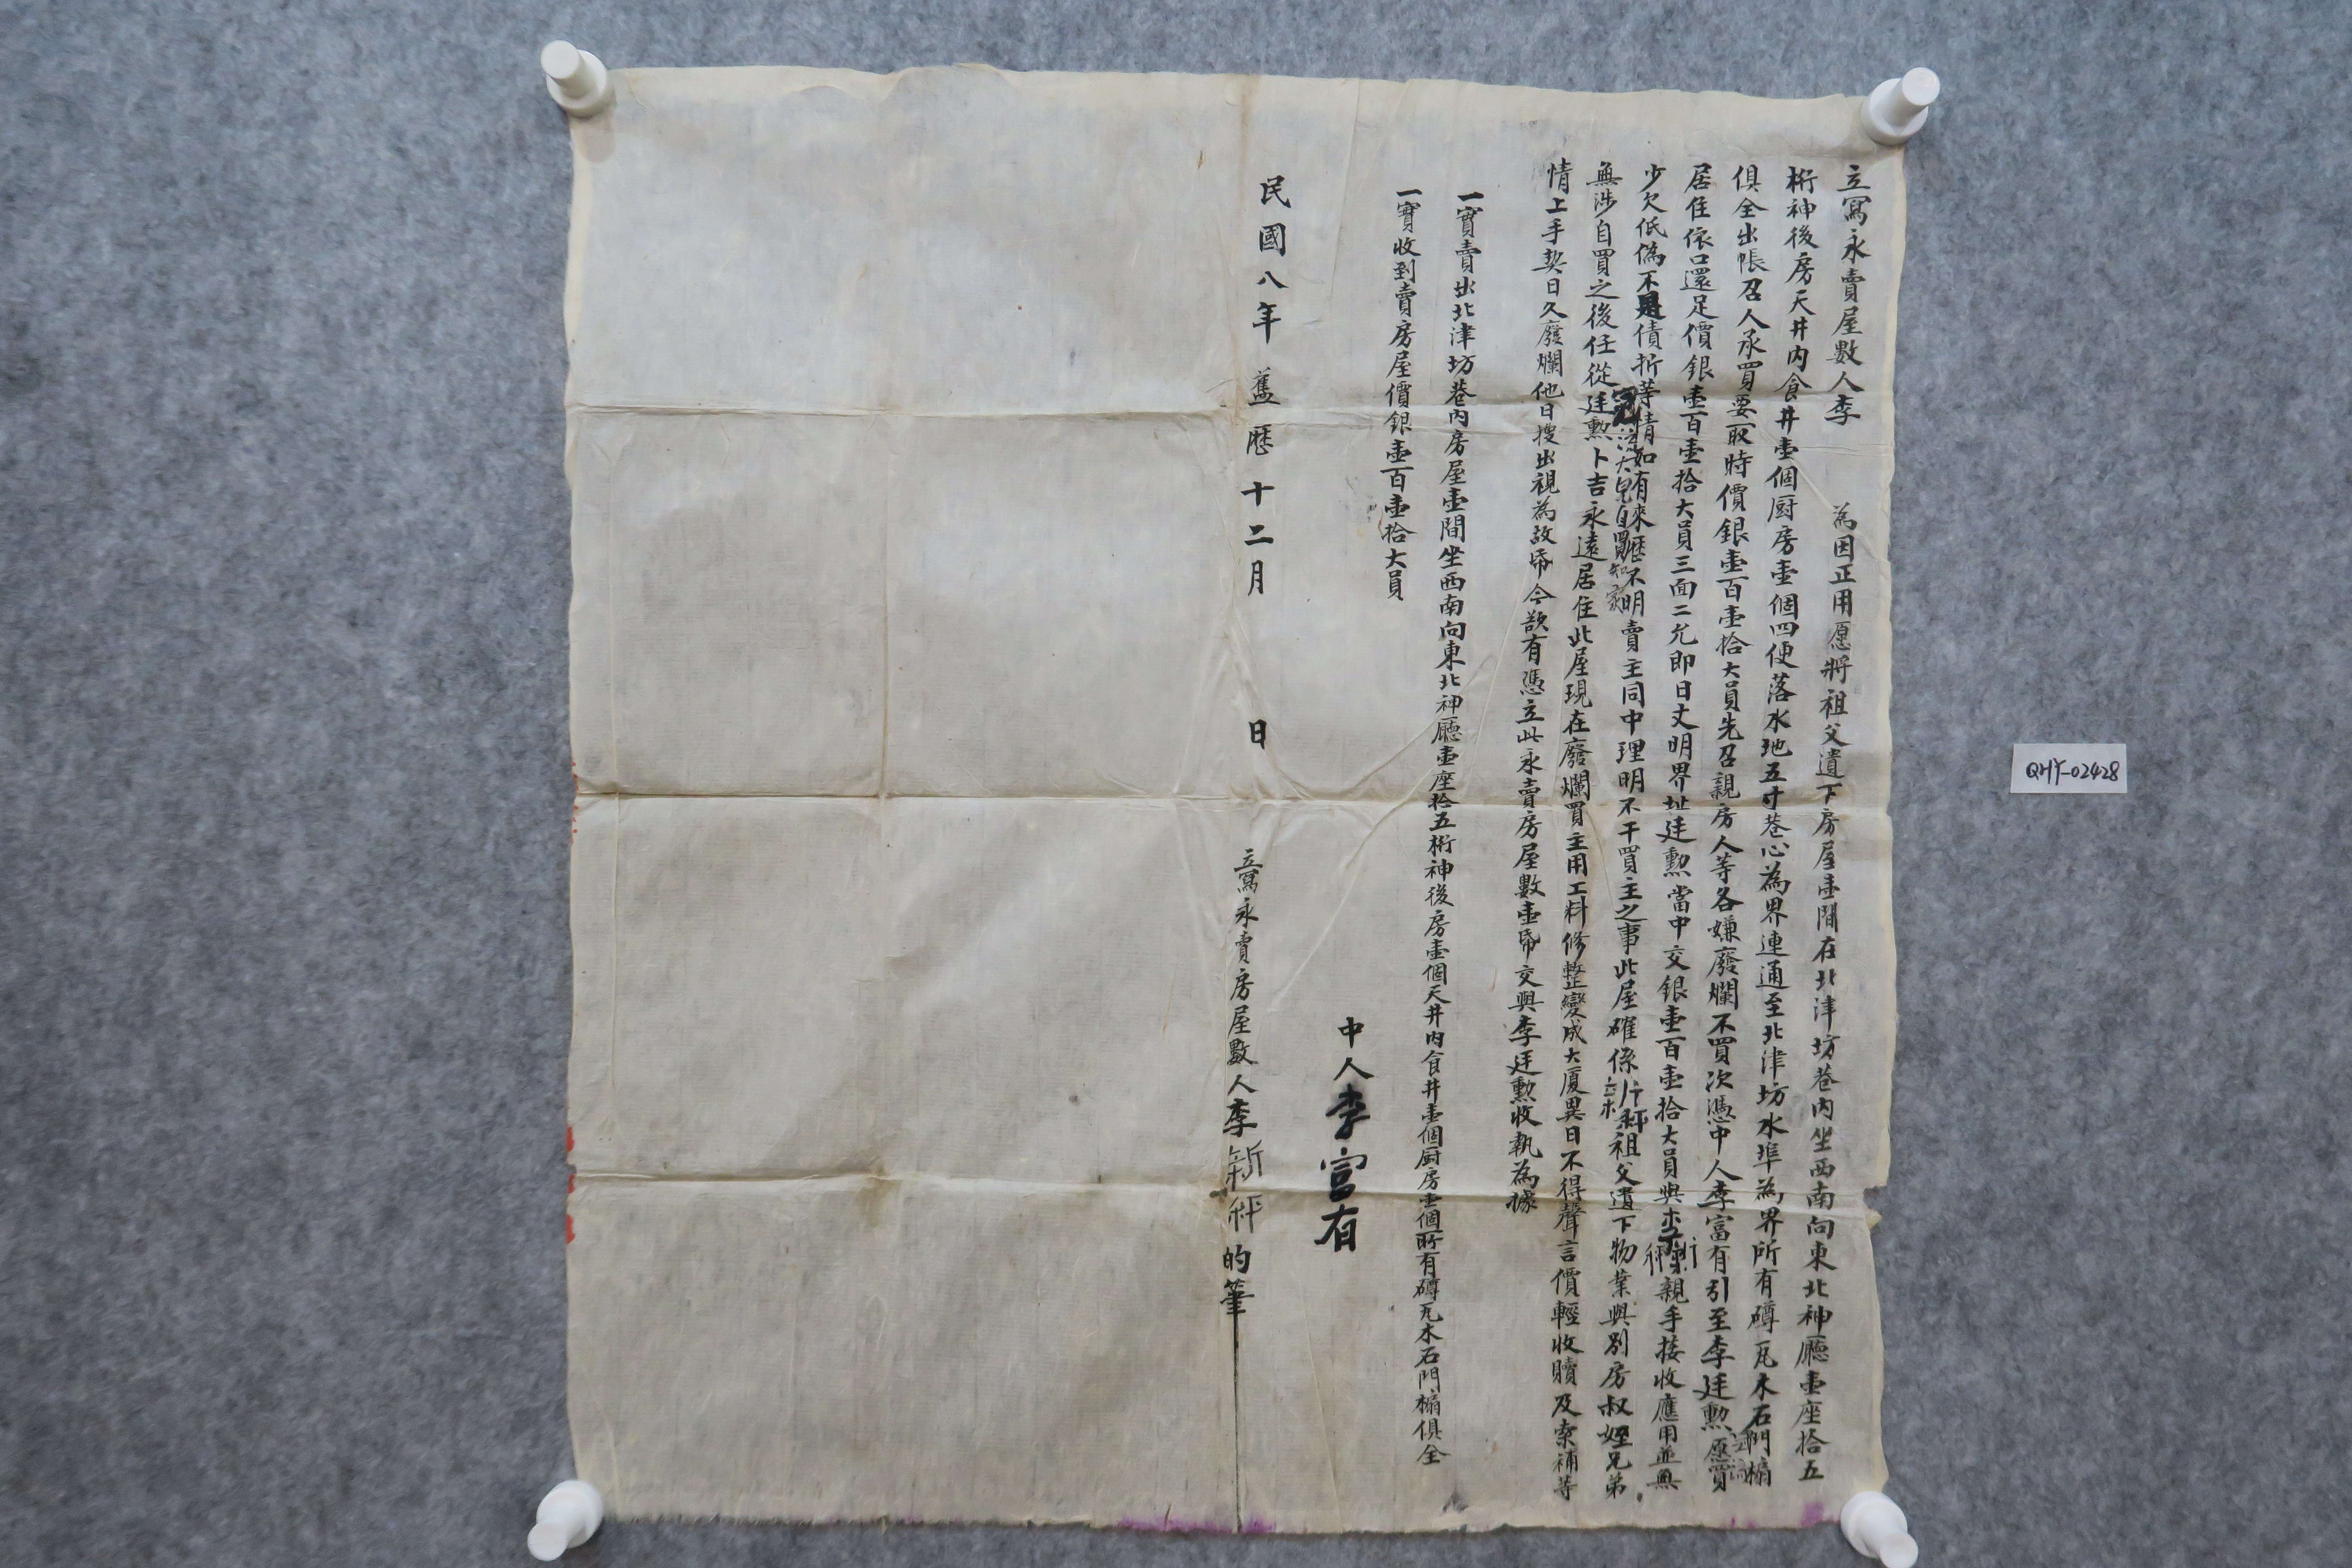 立寫永賣屋數人李 為因正用愿將祖父遺下房屋壹間在北津坊巷內坐西南向東北神廳壹座拾五
桁神後房天井內食井壹個厨房壹個四便落水地五寸巷心為界連通至北津坊水埠為界所有磚瓦木石門楄
俱全出帳召人承買要取時價銀壹百壹拾大員先召親房人等各嫌廢爛不買次憑中人李富有引至李廷勲愿買
居住依口還足價銀壹百壹拾大員三面二允即日丈明界址廷勲當中交銀壹百壹拾大員與李新科親手接收應用並無
少欠低偽不是債折等情如有來歷不明賣主同中理明不干買主之事此屋確係新科祖父遺下物業與別房叔姪兄弟
無涉自買之後任從廷勲卜吉永遠居住此屋現在廢爛買主用工料修整變成大厦異日不得聲言價輕收贖及索補等
情上手契日久廢爛他日搜出視為故帋今欲有憑立此永賣房屋數壹帋交與李廷勲收執為據
一實賣出北津坊巷內房屋壹間坐西南向東北神廳壹座拾五桁神後房壹個天井內食井壹個厨房壹個所有磚瓦木石門楄俱全
一實收到賣房屋價銀壹百壹拾大員
中人李富有
民國八年舊歷十二月 日 立寫永賣房屋數人李新科的筆
QHY-02428